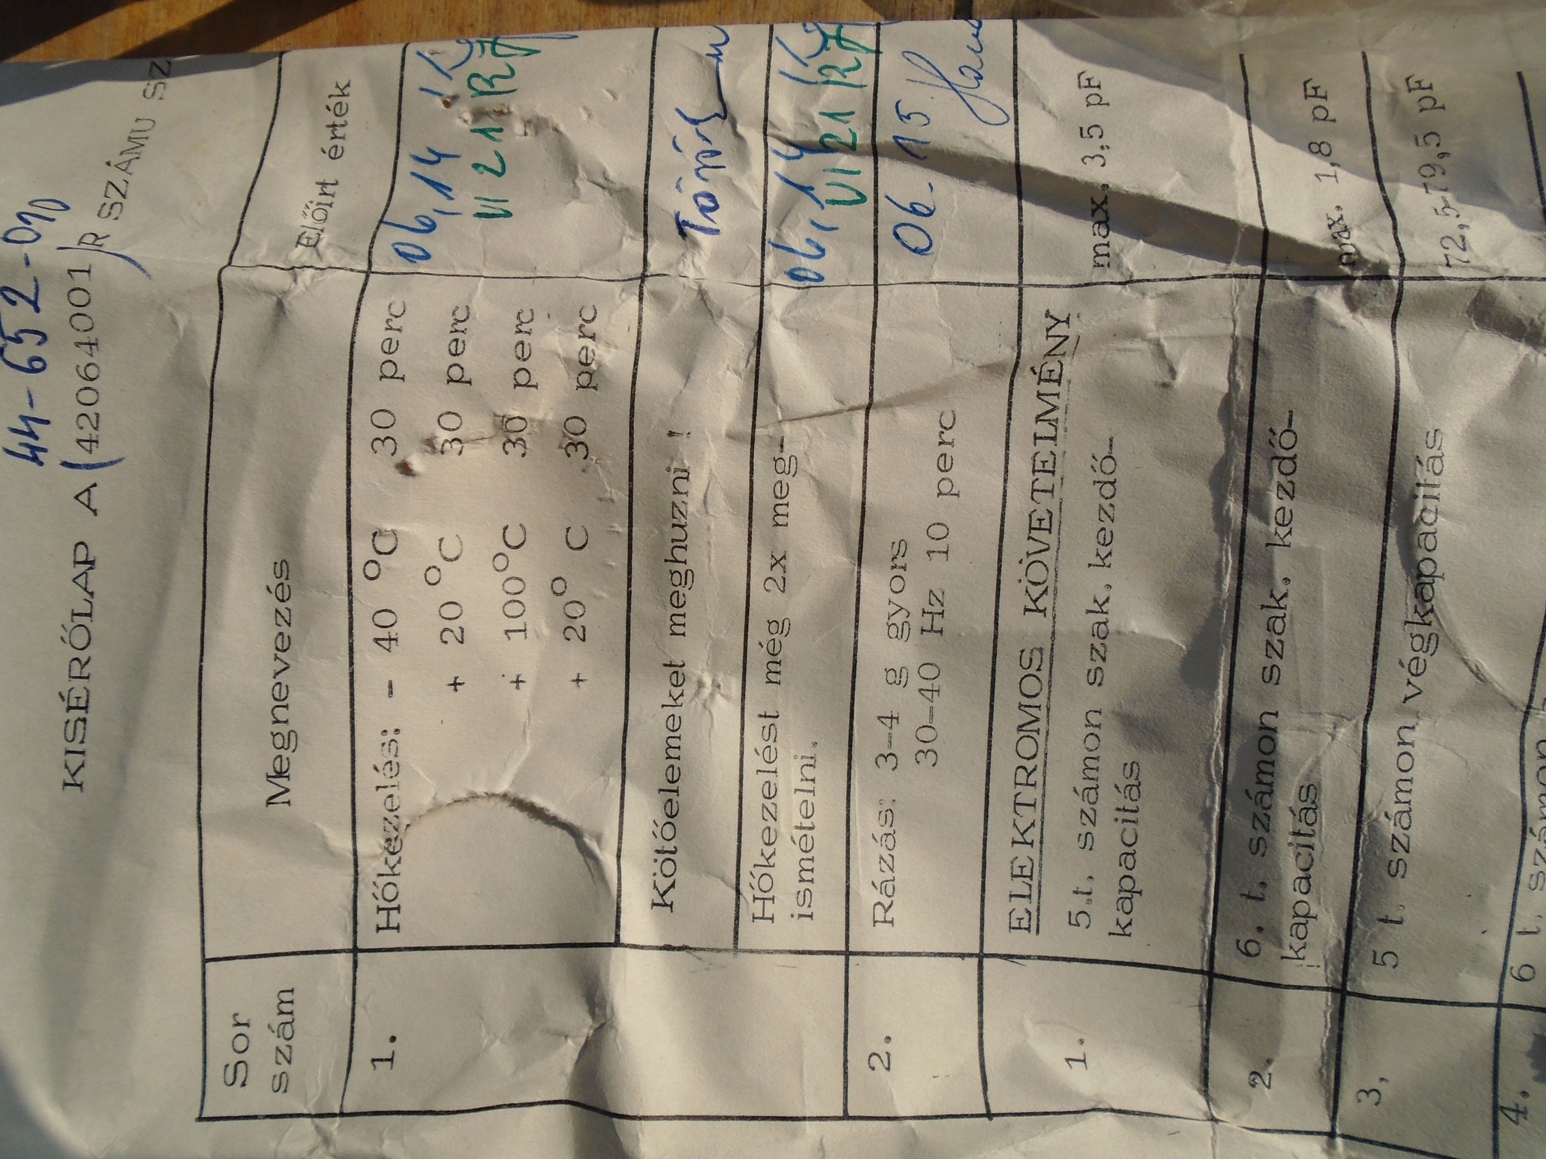 44-652-
KISÉRŐLAP A (42064001)R SZÁMU SZ
Sor szám
Megnevezés
Előirt érték
1.
Hőkezelés: - 40 °C 30 perc
+ 20 °C 30 perc
+ 100°C 30 perc
+ 20° C 30 perc
06,14
VI 21
Kötőelemeket meghuzni !
Török
Hőkezelést még 2x meg-
ismételni.
06,14
VI 21
2.
Rázás: 3-4 g gyors
30-40 Hz 10 perc
06. 15.
ELEKTROMOS KÖVETELMÉNY
1.
5.t. számon szak. kezdő-
kapacitás
max. 3,5 pF
2.
6. t. számon szak. kezdő-
kapacitás
max. 1,8 pF
3.
5 t. számon végkapacitás
72,5-79,5 pF
4.
6 t. számon